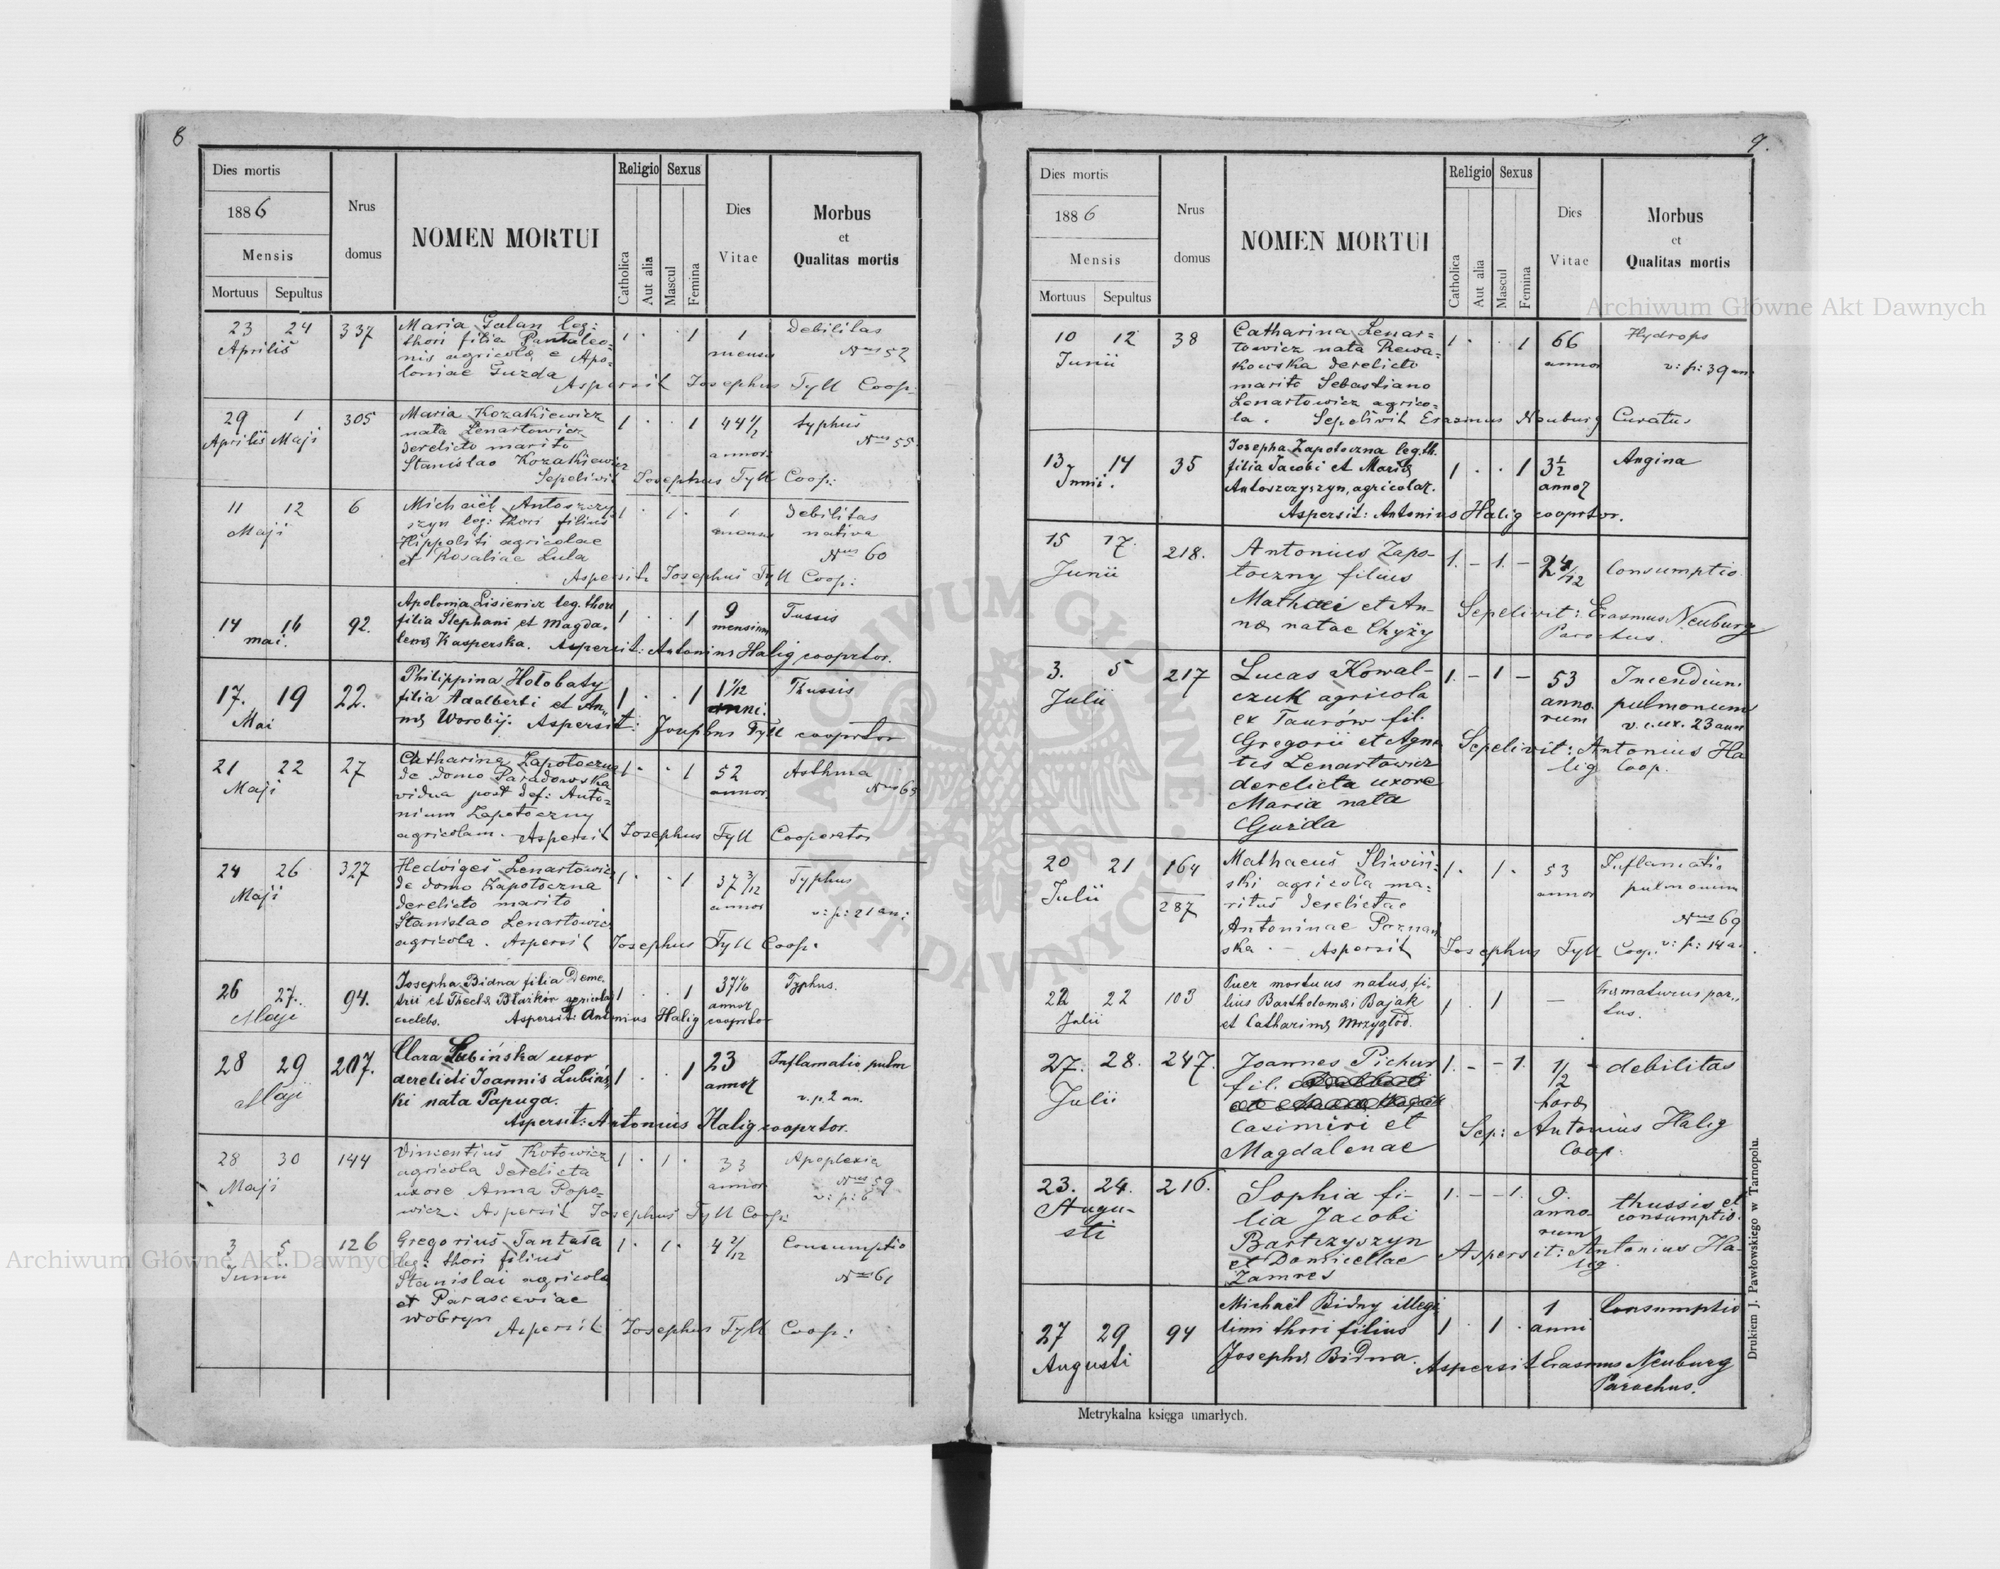 8
Dies mortis
1886
Mensis
Mortuus Sepultus
Nrus domus
NOMEN MORTUI
Religio Sexus
Catholica Aut alia Mascul Femina
Dies Vitae
Morbus
et
Qualitas mortis
23 24 337 Maria Galan leg: 1 · · 1 1 Debilitas
Aprilis thori filia Pantaleo- mensis Nrus 52
nis agricolae e Apo-
loniae Guzda
Aspersit Josephus Tyll Coop:
29 1 305 Maria Kozakiewicz 1 · · 1 44 1/2 typhus
Aprilis Maji nata Lenartowicz annor. Nrus 55
derelicto marito
Stanislao Kozakiewicz
Sepelivit Josephus Tyll Coop:
11 12 6 Michaël Antoszczy- 1 · 1 · 1 debilitas
Maji szyn leg: thori filius mensis nativa
Hippoliti agricolae Nrus 60
et Rosaliae Lula
Aspersit Josephus Tyll Coop:
14 16 92. Apolonia Lisiewicz leg. thori 1 · · 1 9 Tussis
mai. filia Stephani et Magda- mensium
lenae Kasperska. Aspersit: Antonius Halig cooprtor.
17. 19 22. Philippina Hołobaty 1 · · 1 1 1/12 Thussis
Mai filia Adalberti et An- anni.
nae Worobij. Aspersit: Josephus Tyll cooprtor
21 22 27 Catharina Zapotoczna 1 · · 1 52 Asthma
Maji de domo Paradowska annor. Nrus 65
vidua post def: Anto-
nium Zapotoczny
agricolam. Aspersit Josephus Tyll Cooperator
24 26 327 Hedviges Lenartowicz 1 · · 1 37 3/12 Typhus
Maji de domo Zapotoczna annor
derelicto marito v: p: 21 an:
Stanislao Lenartowicz
agricola. Aspersit Josephus Tyll Coop:
26 27. 94. Josepha Bidna filia Deme- 1 · · 1 37 Typhus.
Maji trii et Theclae agricola annor
caelebs. Aspersit: Antonius Halig cooprtor
28 29 207. Clara Łubińska uxor 1 · · 1 23 Inflamatio pulm
Maji derelicti Joannis Łubińs- annor
ki nata Papuga. v. p. 2 an.
Aspersit: Antonius Halig cooprtor.
28 30 144 Vincentius Kotowicz 1 · 1 · 33 Apoplexia
Maji agricola derelicta annor Nrus 59
uxore Anna Popo- v: p: 6
wicz. Aspersit Josephus Tyll Coop:
3 5 126 Gregorius Tantała 1 · 1 · 4 2/12 Consumptio
Junii leg: thori filius Nrus 61
Stanislai agricolae
et Parasceviae
Wobryn
Aspersit Josephus Tyll Coop:
9.
Dies mortis
1886
Mensis
Mortuus Sepultus
Nrus domus
NOMEN MORTUI
Religio Sexus
Catholica Aut alia Mascul Femina
Dies Vitae
Morbus
et
Qualitas mortis
10 12 38 Catharina Lenar- 1 · · 1 66 Hydrops
Junii towicz nata Rewa- annor
kowska derelicto v: p: 39 an
marito Sebastiano
Lenartowicz agrico-
la. Sepelivit Erasmus Neuburg Curatus
13 14 35 Josepha Zapotoczna leg. th. 1 · · 1 3 1/2 Angina
Junii. filia Jacobi et Mariae annor
Antoszczyszyn, agricolar.
Aspersit: Antonius Halig cooprtor.
15 17. 218. Antonius Zapo- 1. - 1. - 2 4/12 Consumptio.
Junii toczny filius
Mathaei et An- Sepelivit: Erasmus Neuburg
nae natae Chyży Parochus.
3. 5 217 Lucas Kowal- 1. - 1 - 53 Incendium
Julii czuk agricola anno- pulmonum
ex Taurów fil. rum v. c. ux. 23 ann
Gregorii et Agne- Sepelivit: Antonius Ha-
tis Lenartowicz lig Coop.
derelicta uxore
Maria nata
Guzda
20 21 164 Mathaeus Śliwiń- 1 · 1 · 53 Inflamatio
Julii 287 ski agricola ma- annor pulmonum
ritus derelictae Nrus 69
Antoninae Poznań- v: p: 14 a.
ska. - Aspersit Josephus Tyll Coop:
22 22 103 Puer mortuus natus, fi- 1 · 1 — Praematurus par-
Julii lius Bartholomaei Bajak tus.
et Catharinae Mrzygłod.
27. 28. 247. Joannes Pichur 1. - - 1. 1/2 - debilitas
Julii fil. horae
Casimiri et Sep: Antonius Halig
Magdalenae Coop.
23. 24. 216. Sophia fi- 1. - - 1. 9. thussis et
Augu- lia Jacobi anno- consumptio.
sti Bartczyszyn rum
et Domicellae Aspersit: Antonius Ha-
Zamres lig
27 29 94 Michaël Bidny illegi- 1 · 1 · 1 Consumptio
Augusti timi thori filius anni
Josephae Bidna. Aspersit Erasmus Neuburg
Parochus.
Metrykalna księga umarłych.
Drukiem J. Pawłowskiego w Tarnopolu.
Archiwum Główne Akt Dawnych
Archiwum Główne Akt Dawnych
ARCHIWUM GŁÓWNE AKT DAWNYCH